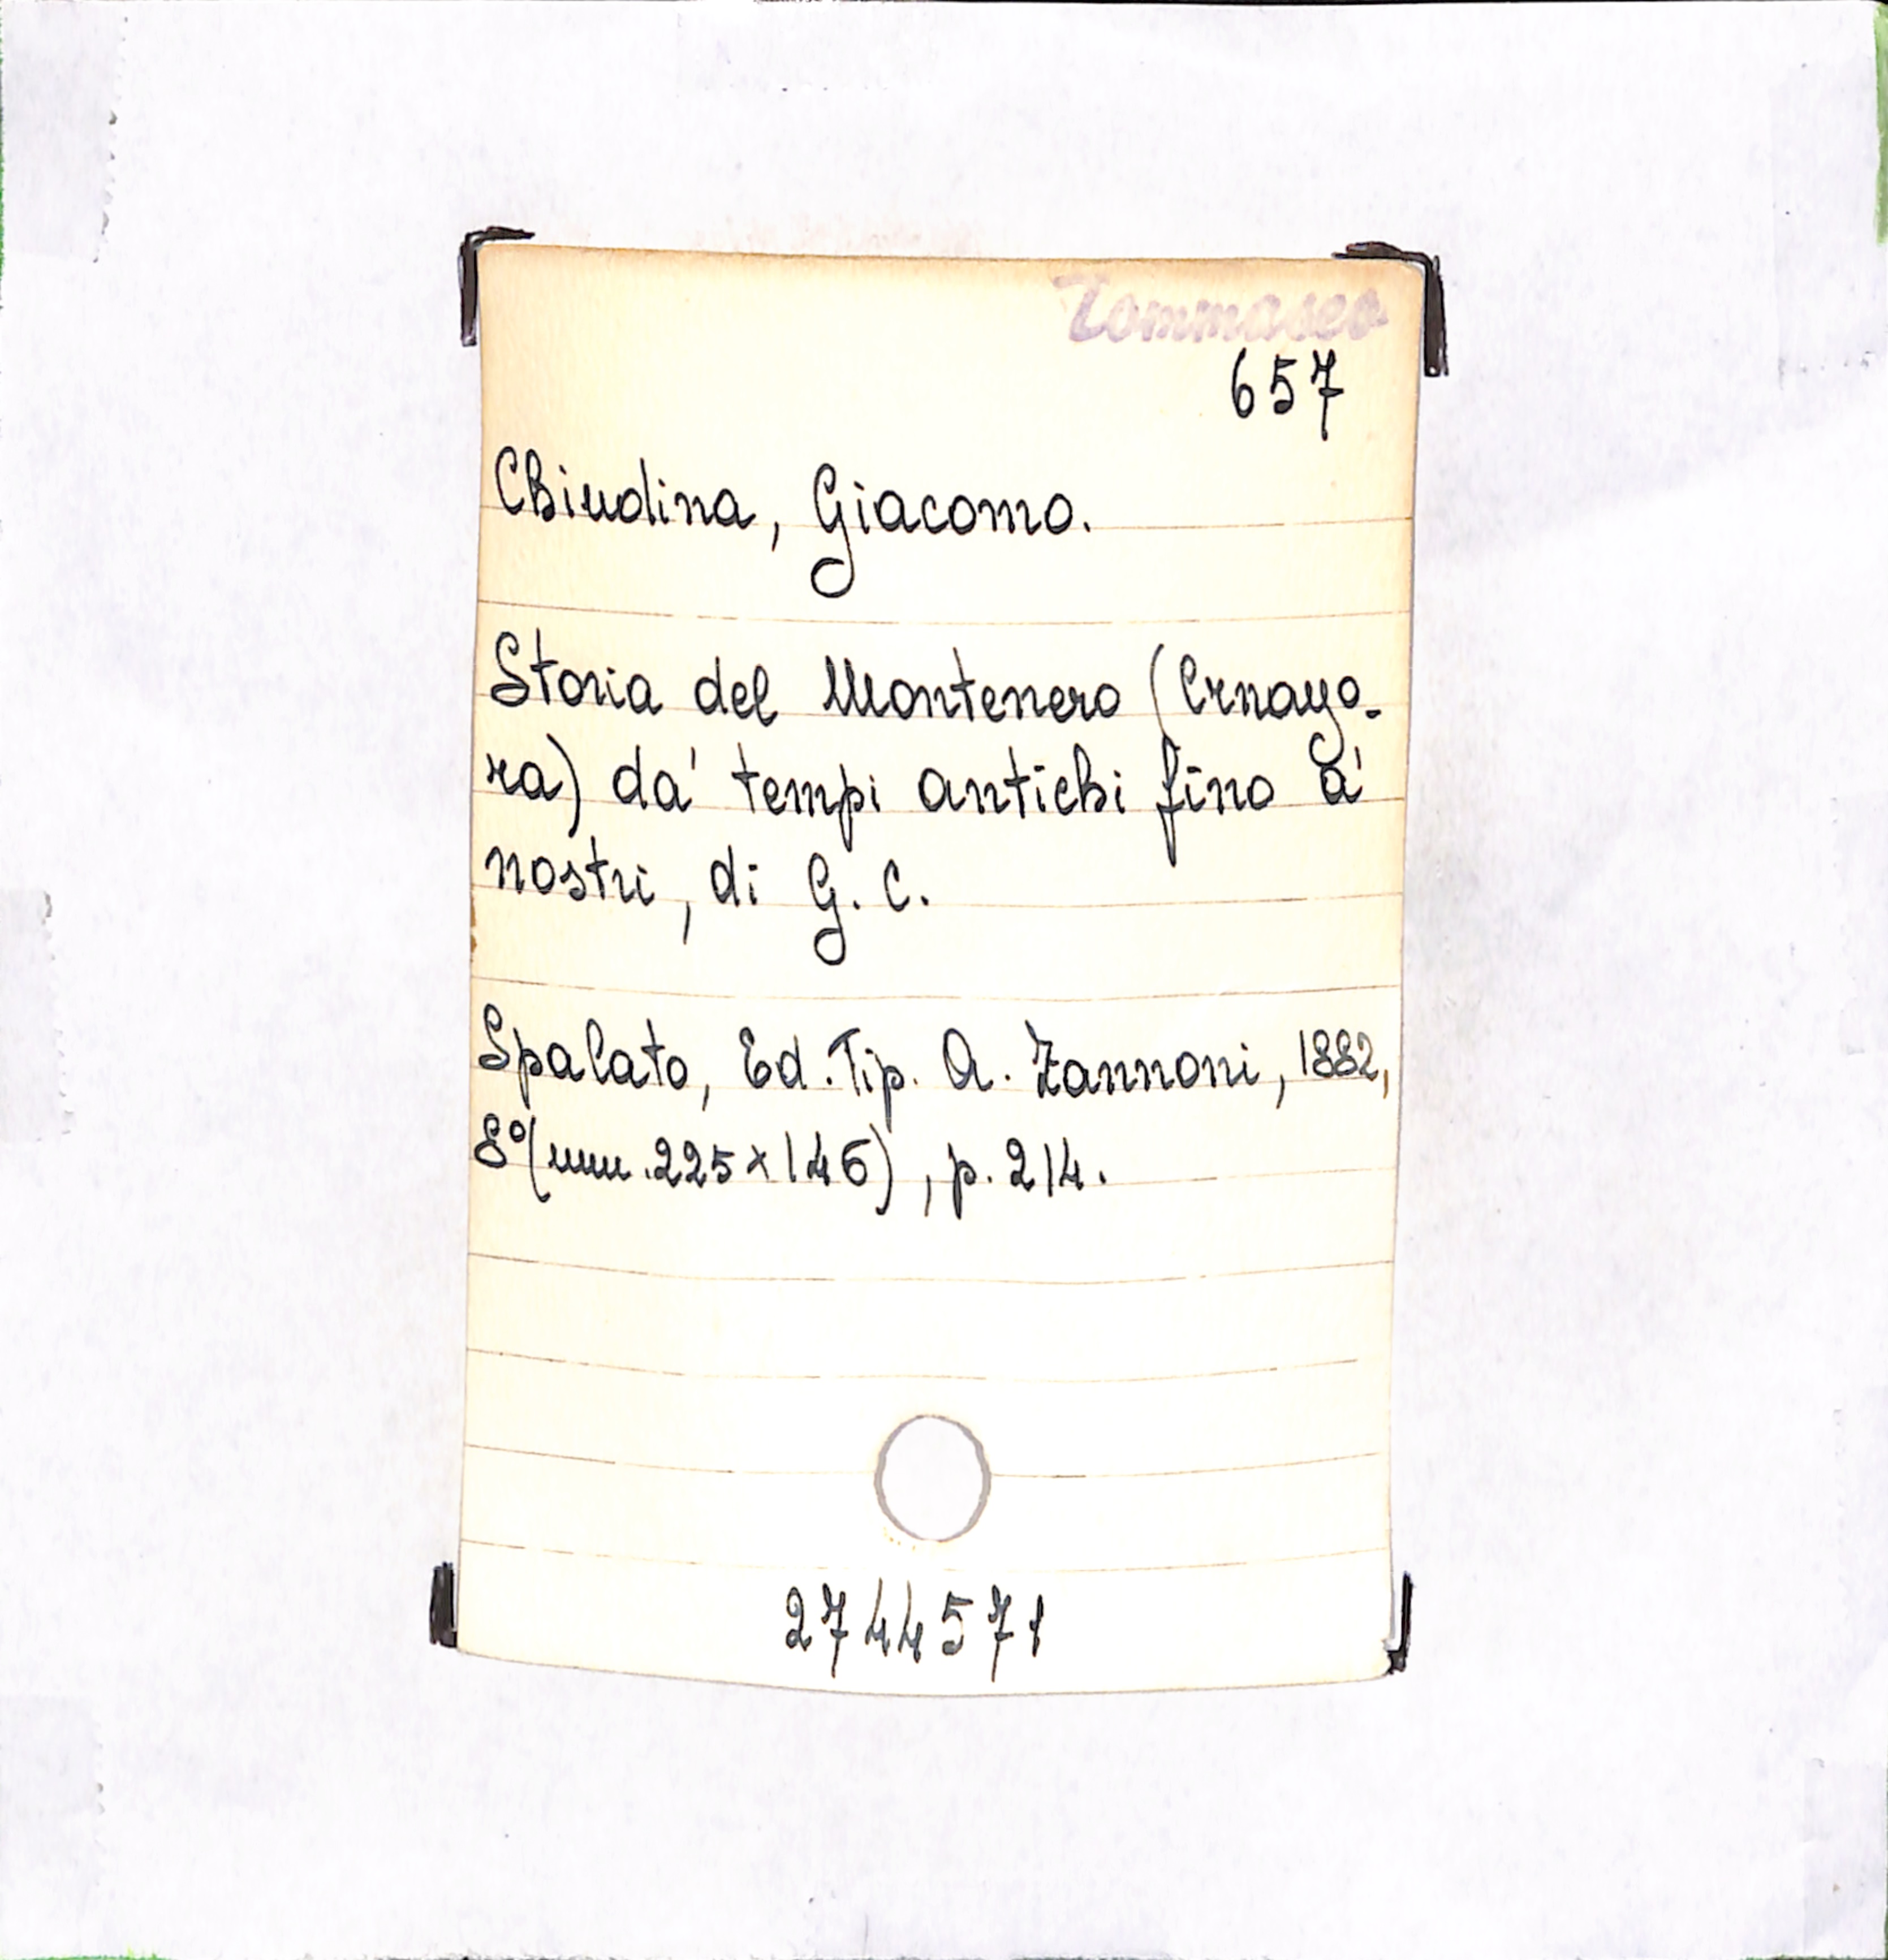 Tommaseo
657
Chiudina, Giacomo.
Storia del Montenero (Crnago-
ra) da' tempi antichi fino a'
nostri, di G. C.
Spalato, Ed. Tip. A. Zannoni, 1882,
8º (mm. 225 x 146), p. 214.
2744571